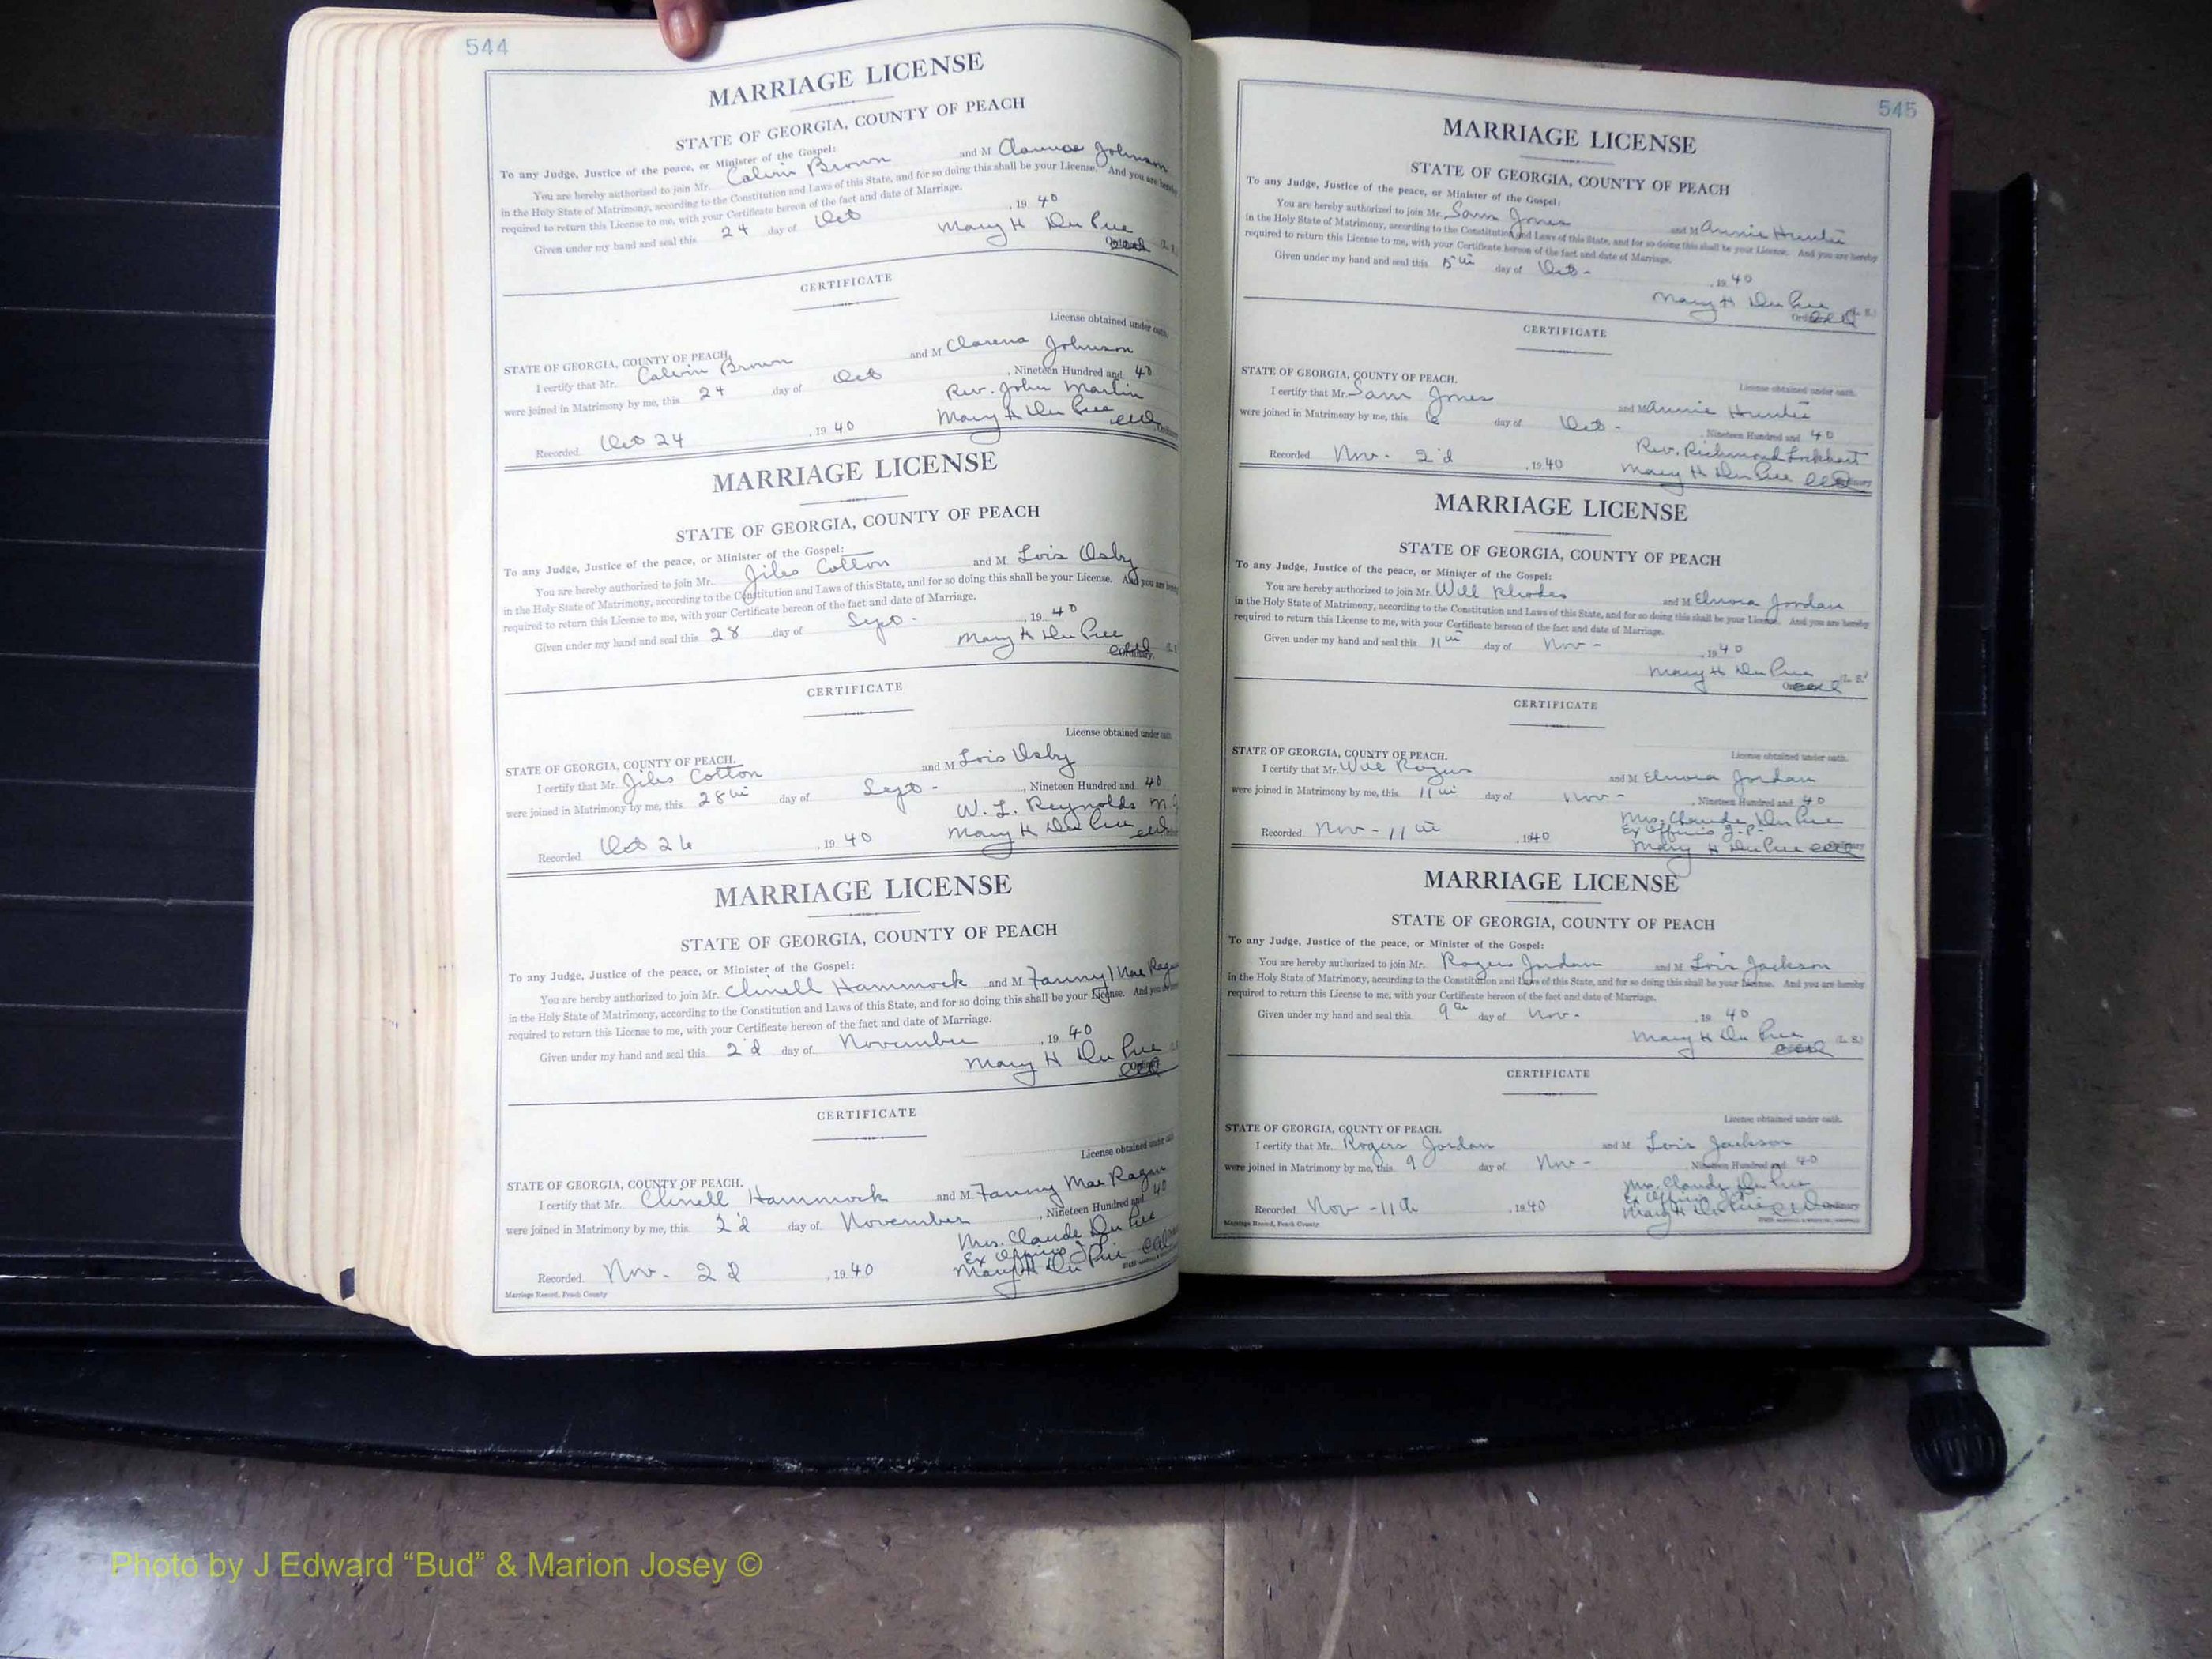 544
MARRIAGE LICENSE
STATE OF GEORGIA, COUNTY OF PEACH
To any Judge, Justice of the peace, or Minister of the Gospel:
You are hereby authorized to join Mr. Calvin Brown and M Johnson
in the Holy State of Matrimony, according to the Constitution and Laws of this State, and for so doing this shall be your License. And you are hereby
required to return this License to me, with your Certificate hereon of the fact and date of Marriage.
Given under my hand and seal this 24 day of Oct , 19 40
Mary H Du Pree
CERTIFICATE
License obtained under oath.
STATE OF GEORGIA, COUNTY OF PEACH.
I certify that Mr. Calvin Brown and M Clarena Johnson
were joined in Matrimony by me, this 24 day of Oct , Nineteen Hundred and 40
Rev. John Martin
Recorded Oct 24 , 19 40 Mary H Du Pree
MARRIAGE LICENSE
STATE OF GEORGIA, COUNTY OF PEACH
To any Judge, Justice of the peace, or Minister of the Gospel:
You are hereby authorized to join Mr. Jiles Cotton and M Lois Osby
in the Holy State of Matrimony, according to the Constitution and Laws of this State, and for so doing this shall be your License. And you are hereby
required to return this License to me, with your Certificate hereon of the fact and date of Marriage.
Given under my hand and seal this 28 day of Sept. , 19 40
Mary H Du Pree
CERTIFICATE
License obtained under oath.
STATE OF GEORGIA, COUNTY OF PEACH.
I certify that Mr. Jiles Cotton and M Lois Osby
were joined in Matrimony by me, this 28th day of Sept - , Nineteen Hundred and 40
W. L. Reynolds M.G
Recorded Oct 26 , 19 40 Mary H Du Pree
MARRIAGE LICENSE
STATE OF GEORGIA, COUNTY OF PEACH
To any Judge, Justice of the peace, or Minister of the Gospel:
You are hereby authorized to join Mr. Clinell Hammock and M Fanny Mae Ragan
in the Holy State of Matrimony, according to the Constitution and Laws of this State, and for so doing this shall be your License. And you are hereby
required to return this License to me, with your Certificate hereon of the fact and date of Marriage.
Given under my hand and seal this 2'd day of November , 19 40
Mary H Du Pree
CERTIFICATE
License obtained under oath
STATE OF GEORGIA, COUNTY OF PEACH.
I certify that Mr. Clinell Hammock and M Fanny Mae Ragan
were joined in Matrimony by me, this 2'd day of November , Nineteen Hundred and 40
Mrs. Claude Du Pree
Ex Officio J.P.
Recorded Nov. 2d , 19 40 Mary H Du Pree
Marriage Record, Peach County
545
MARRIAGE LICENSE
STATE OF GEORGIA, COUNTY OF PEACH
To any Judge, Justice of the peace, or Minister of the Gospel:
You are hereby authorized to join Mr. Sam Jones and M Annie Hunter
in the Holy State of Matrimony, according to the Constitution and Laws of this State, and for so doing this shall be your License. And you are hereby
required to return this License to me, with your Certificate hereon of the fact and date of Marriage.
Given under my hand and seal this 5th day of Oct - , 19 40
Mary H Du Pree (L. S.)
CERTIFICATE
License obtained under oath.
STATE OF GEORGIA, COUNTY OF PEACH.
I certify that Mr. Sam Jones and M Annie Hunter
were joined in Matrimony by me, this 6 day of Oct - , Nineteen Hundred and 40
Rev. Richmond Lockhart
Recorded Nov. 2'd , 19 40 Mary H Du Pree
MARRIAGE LICENSE
STATE OF GEORGIA, COUNTY OF PEACH
To any Judge, Justice of the peace, or Minister of the Gospel:
You are hereby authorized to join Mr. Will Rhodes and M Elnora Jordan
in the Holy State of Matrimony, according to the Constitution and Laws of this State, and for so doing this shall be your License. And you are hereby
required to return this License to me, with your Certificate hereon of the fact and date of Marriage.
Given under my hand and seal this 11th day of Nov - , 19 40
Mary H Du Pree (L. S.)
CERTIFICATE
License obtained under oath.
STATE OF GEORGIA, COUNTY OF PEACH.
I certify that Mr. Will Rogers and M Elnora Jordan
were joined in Matrimony by me, this 11th day of Nov - , Nineteen Hundred and 40
Mrs. Claude Du Pree
Ex Officio J.P.
Recorded Nov - 11th , 1940 Mary H Du Pree
MARRIAGE LICENSE
STATE OF GEORGIA, COUNTY OF PEACH
To any Judge, Justice of the peace, or Minister of the Gospel:
You are hereby authorized to join Mr. Rogers Jordan and M Lois Jackson
in the Holy State of Matrimony, according to the Constitution and Laws of this State, and for so doing this shall be your License. And you are hereby
required to return this License to me, with your Certificate hereon of the fact and date of Marriage.
Given under my hand and seal this 9th day of Nov - , 19 40
Mary H Du Pree (L. S.)
CERTIFICATE
License obtained under oath.
STATE OF GEORGIA, COUNTY OF PEACH.
I certify that Mr. Rogers Jordan and M Lois Jackson
were joined in Matrimony by me, this 9 day of Nov - , Nineteen Hundred and 40
Mrs. Claude Du Pree
Ex Officio J.P.
Recorded Nov - 11th , 1940 Mary H Du Pree
Marriage Record, Peach County
Photo by J Edward “Bud” & Marion Josey ©